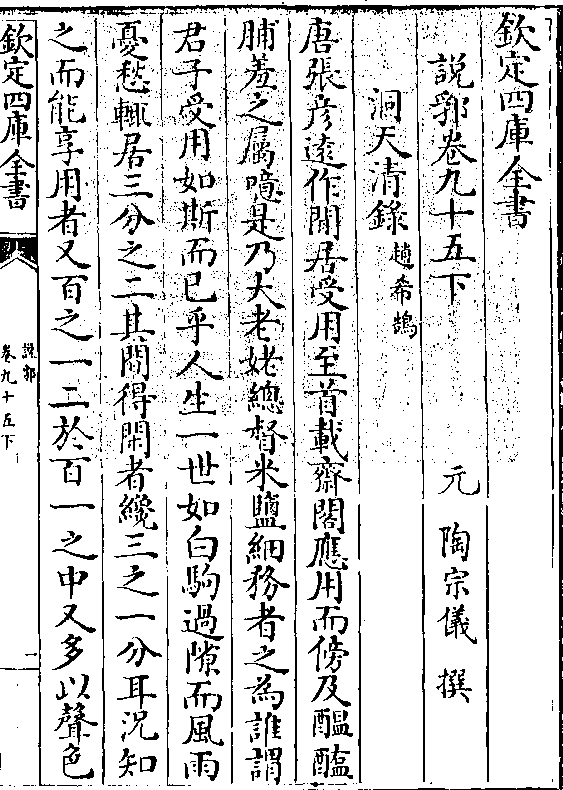 欽定四庫全書
説郛卷九十五下
元　陶宗儀　撰
洞天清錄 趙希鵠
唐張彦遠作閒居受用至首載齋閣應用而傍及醖醢
脯羞之屬噫是乃大老姥總督米鹽細務者之為誰謂
君子受用如斯而已乎人生一世如白駒過隙而風雨
憂愁輒居三分之二其間得閒者纔三之一分耳況知
之而能享用者又百之一二於百一之中又多以聲色
欽定四庫全書
説郛
卷九十五下
一